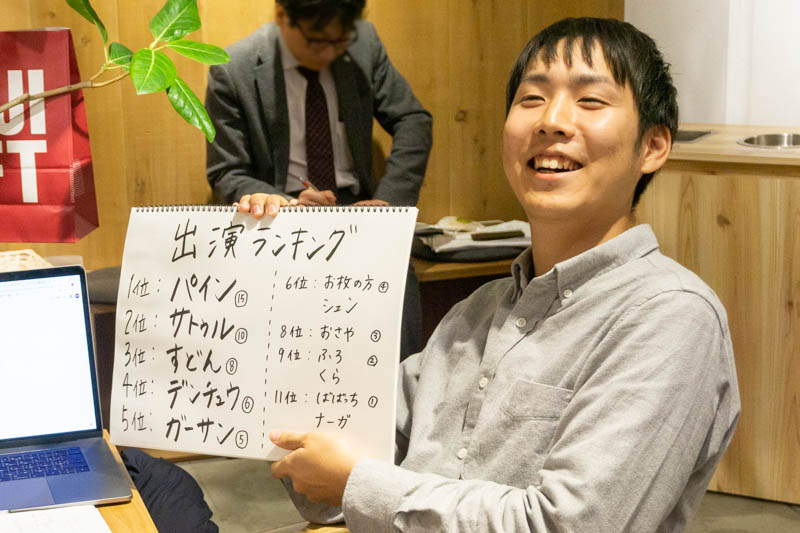 UI
FT
出演ランキング
1位: パイン⑮
2位: サトゥル⑩
3位: すどん⑧
4位: デンチュウ⑥
5位: ガーサン⑤
6位: お枚の方④
シュン
8位: おさや③
9位: ふろ②
くら
11位: ばばっち①
ナーガ